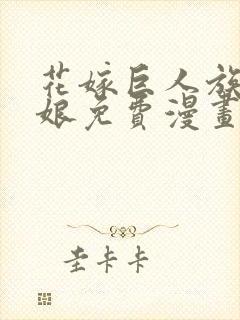 花嫁巨人族
娘免費漫畫
圭卡卡